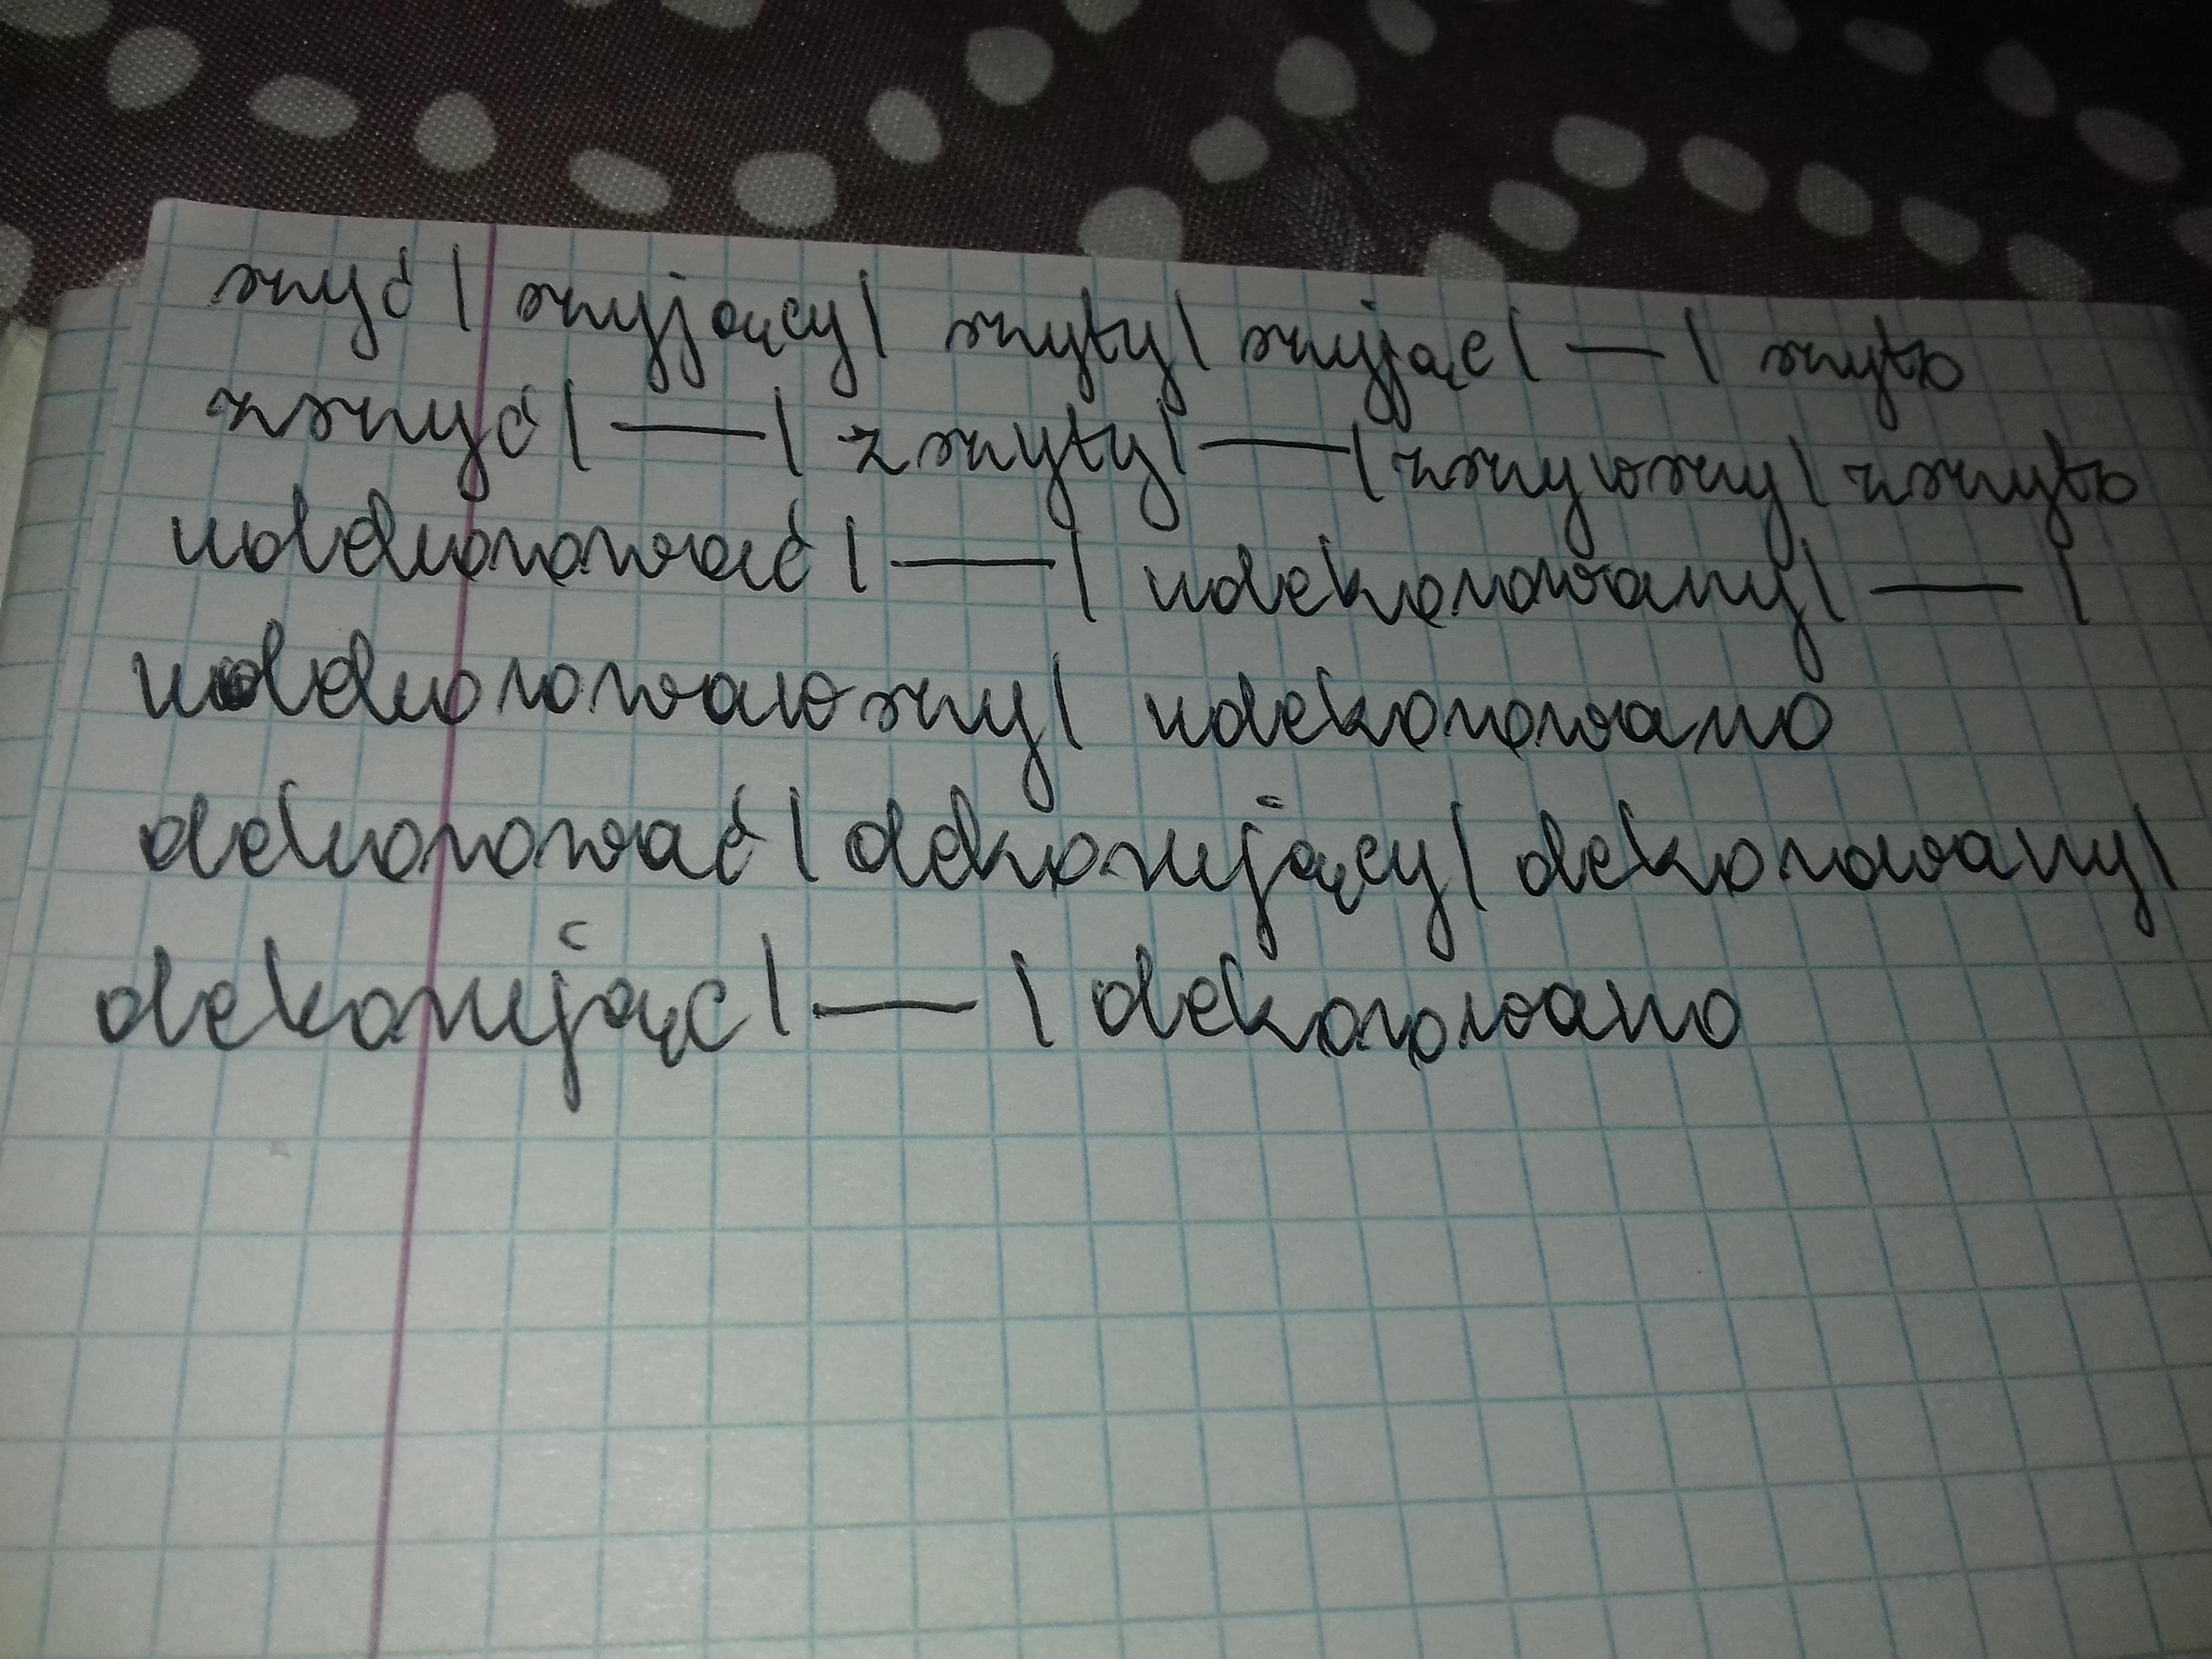 szyć | szyjący | szyty | szyjąc | — | szyto
zszyć | — | zszyty | — | zszywszy | zszyto
udekorować | — | udekorowany | — |
udekorowawszy | udekorowano
dekorować | dekorujący | dekorowany |
dekorując | — | dekorowano